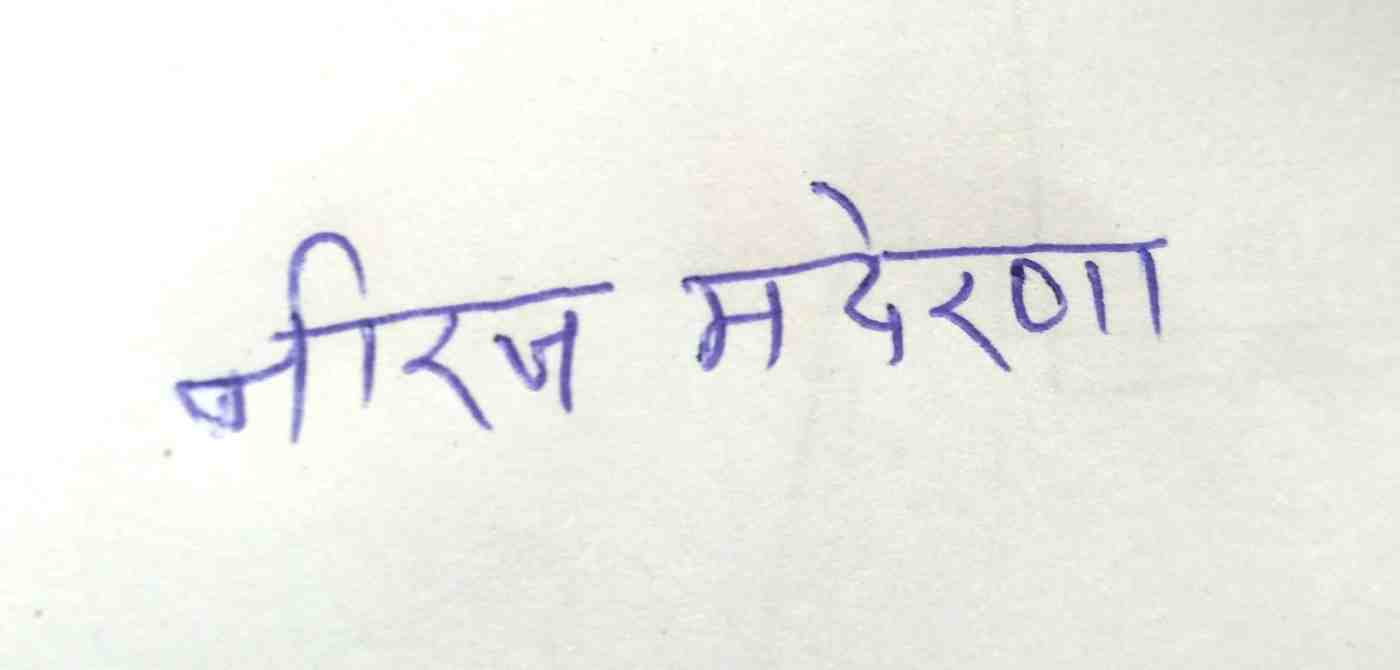 नीरज मदेरणा